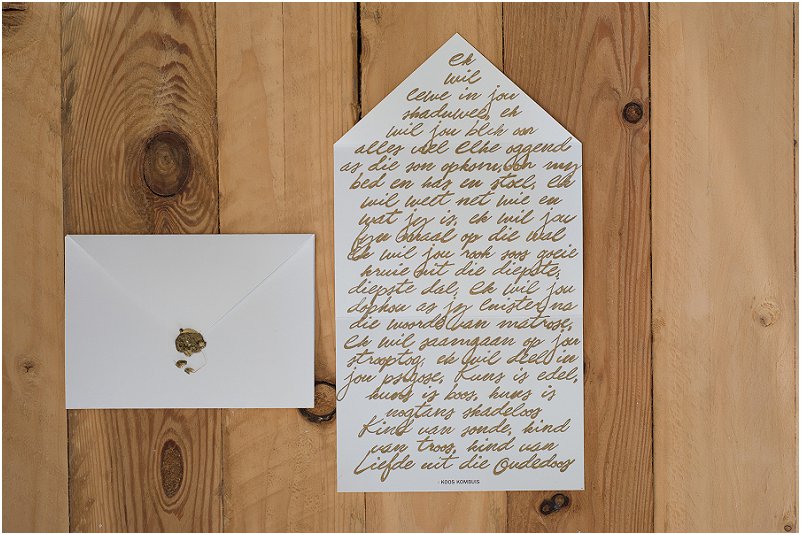 Ek
wil
lewe in jou
skaduwee, ek
wil jou blik oor
alles wel elke oggend
as die son opkom, oor my
bed en kas en stoel. Ek
wil weet net wie en
wat jy is, ek wil jou
fyn koraal op die wal
Ek wil jou rook soos goeie
kruie uit die diepste,
diepste dal, Ek wil jou
dophou as jy luister na
die woorde van matrose,
Ek wil saamgaan op jou
strooptog, ek wil deel in
jou psigose. Kuns is edel,
kuns is boos, kuns is
nogtans skadeloos
Kind van sonde, kind
van troos, kind van
Liefde uit die Oudedoos
- KOOS KOMBUIS